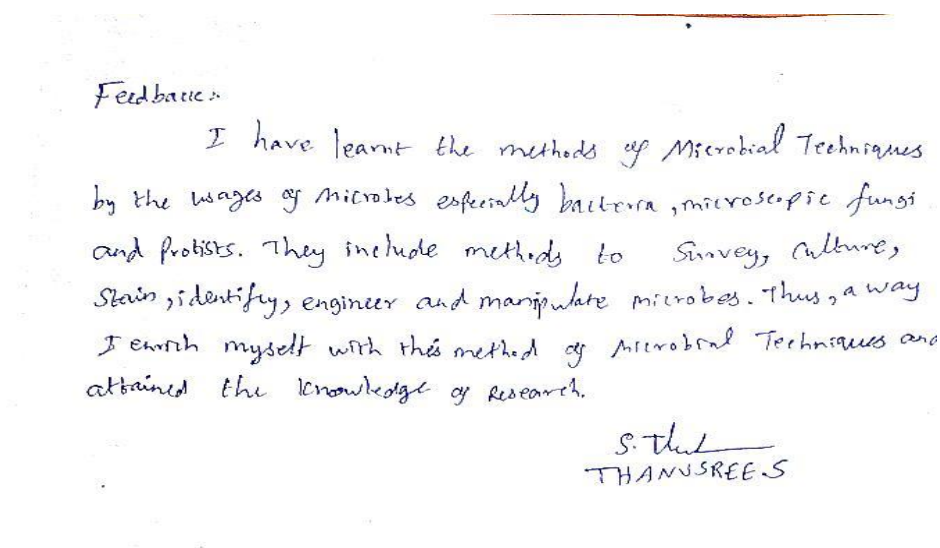 Feedback:-
I have learnt the methods of Microbial Techniques
by the usages of Microbes especially bacteria, microscopic fungi
and Protists. They include methods to Survey, Culture,
Stain, identify, engineer and manipulate microbes. Thus, a way
I enrich myself with this method of Microbial Techniques and
attained the knowledge of Research.
S. Thu
THANUSREE.S